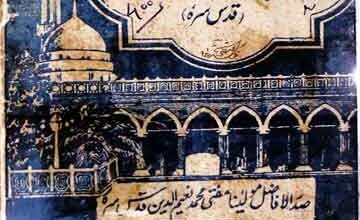 (قدس سرہ)
صدر الافاضل مولینا مفتی محمد نعیم الدین قدس سرہ